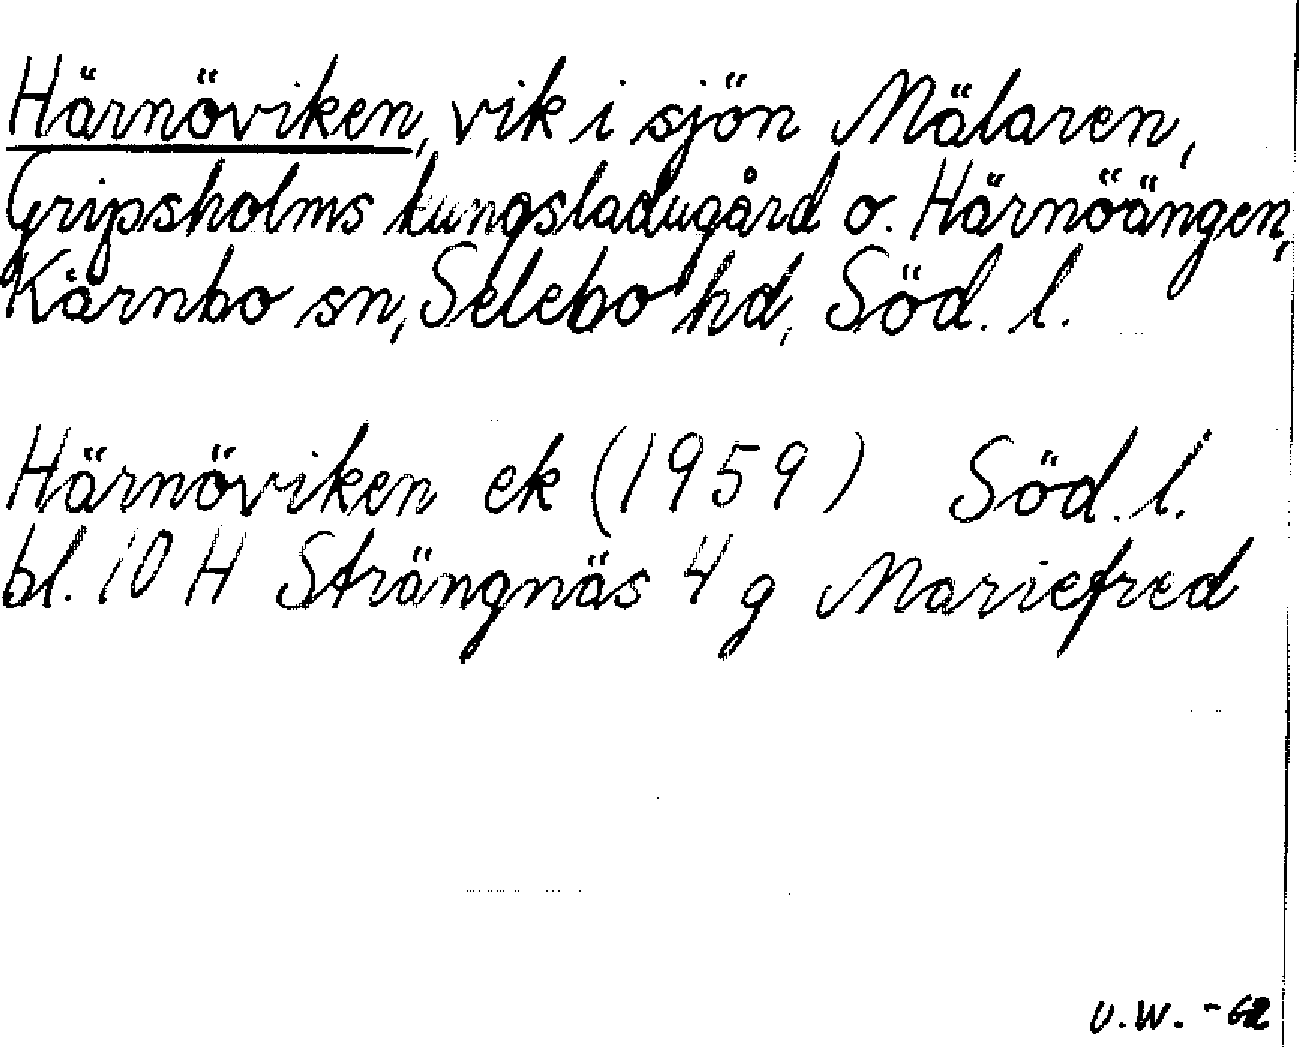 Härnöviken, vik i sjön Mälaren,
Gripsholms kungsladugård o. Härnöängen,
Kärnbo sn, Selebo hd, Söd. l.
Härnöviken ek (1959) Söd. l.
bl. 10 H Strängnäs 4 g Mariefred
U.W. -62